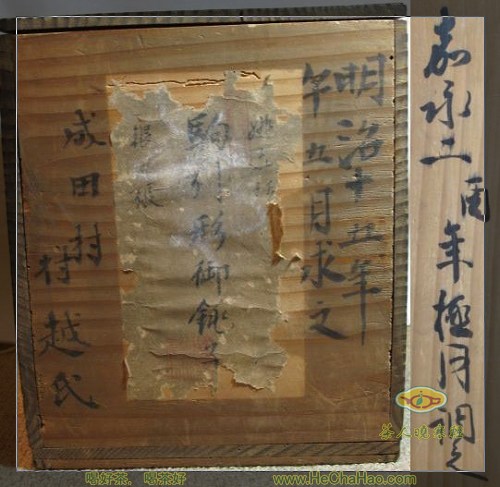 嘉永二酉年極月調之
明治十五年
午五月求之
駒引形御銚子
成田村
村越氏
喝好茶、喝茶好
www.HeChaHao.com